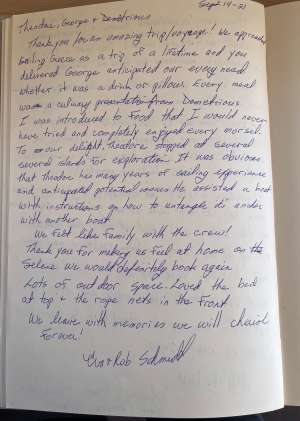 Sept 14-21
Theodore, George + Demetrious
Thank you for an amazing trip/voyage! We approached
sailing Greece as a trip of a lifetime and you
delivered. George anticipated our every need
whether it was a drink or pillow. Every meal
was a culinary presentation from Demetrious
I was introduced to food that I would never
have tried and completely enjoyed every morsel.
To our delight, Theodore stopped at several
several islands for exploration. It was obvious
that Theodore has many years of sailing experience
and anticipated potential issues. He assisted a boat
with instructions on how to untangle anchor
with another boat.
We felt like family with the crew!
Thank you for making us feel at home on the
Selene. We would definitely book again
Lots of outdoor space. Loved the bed
at top + the rope nets in the front.
We leave with memories we will cherish
forever!
+ Rob Schmidt